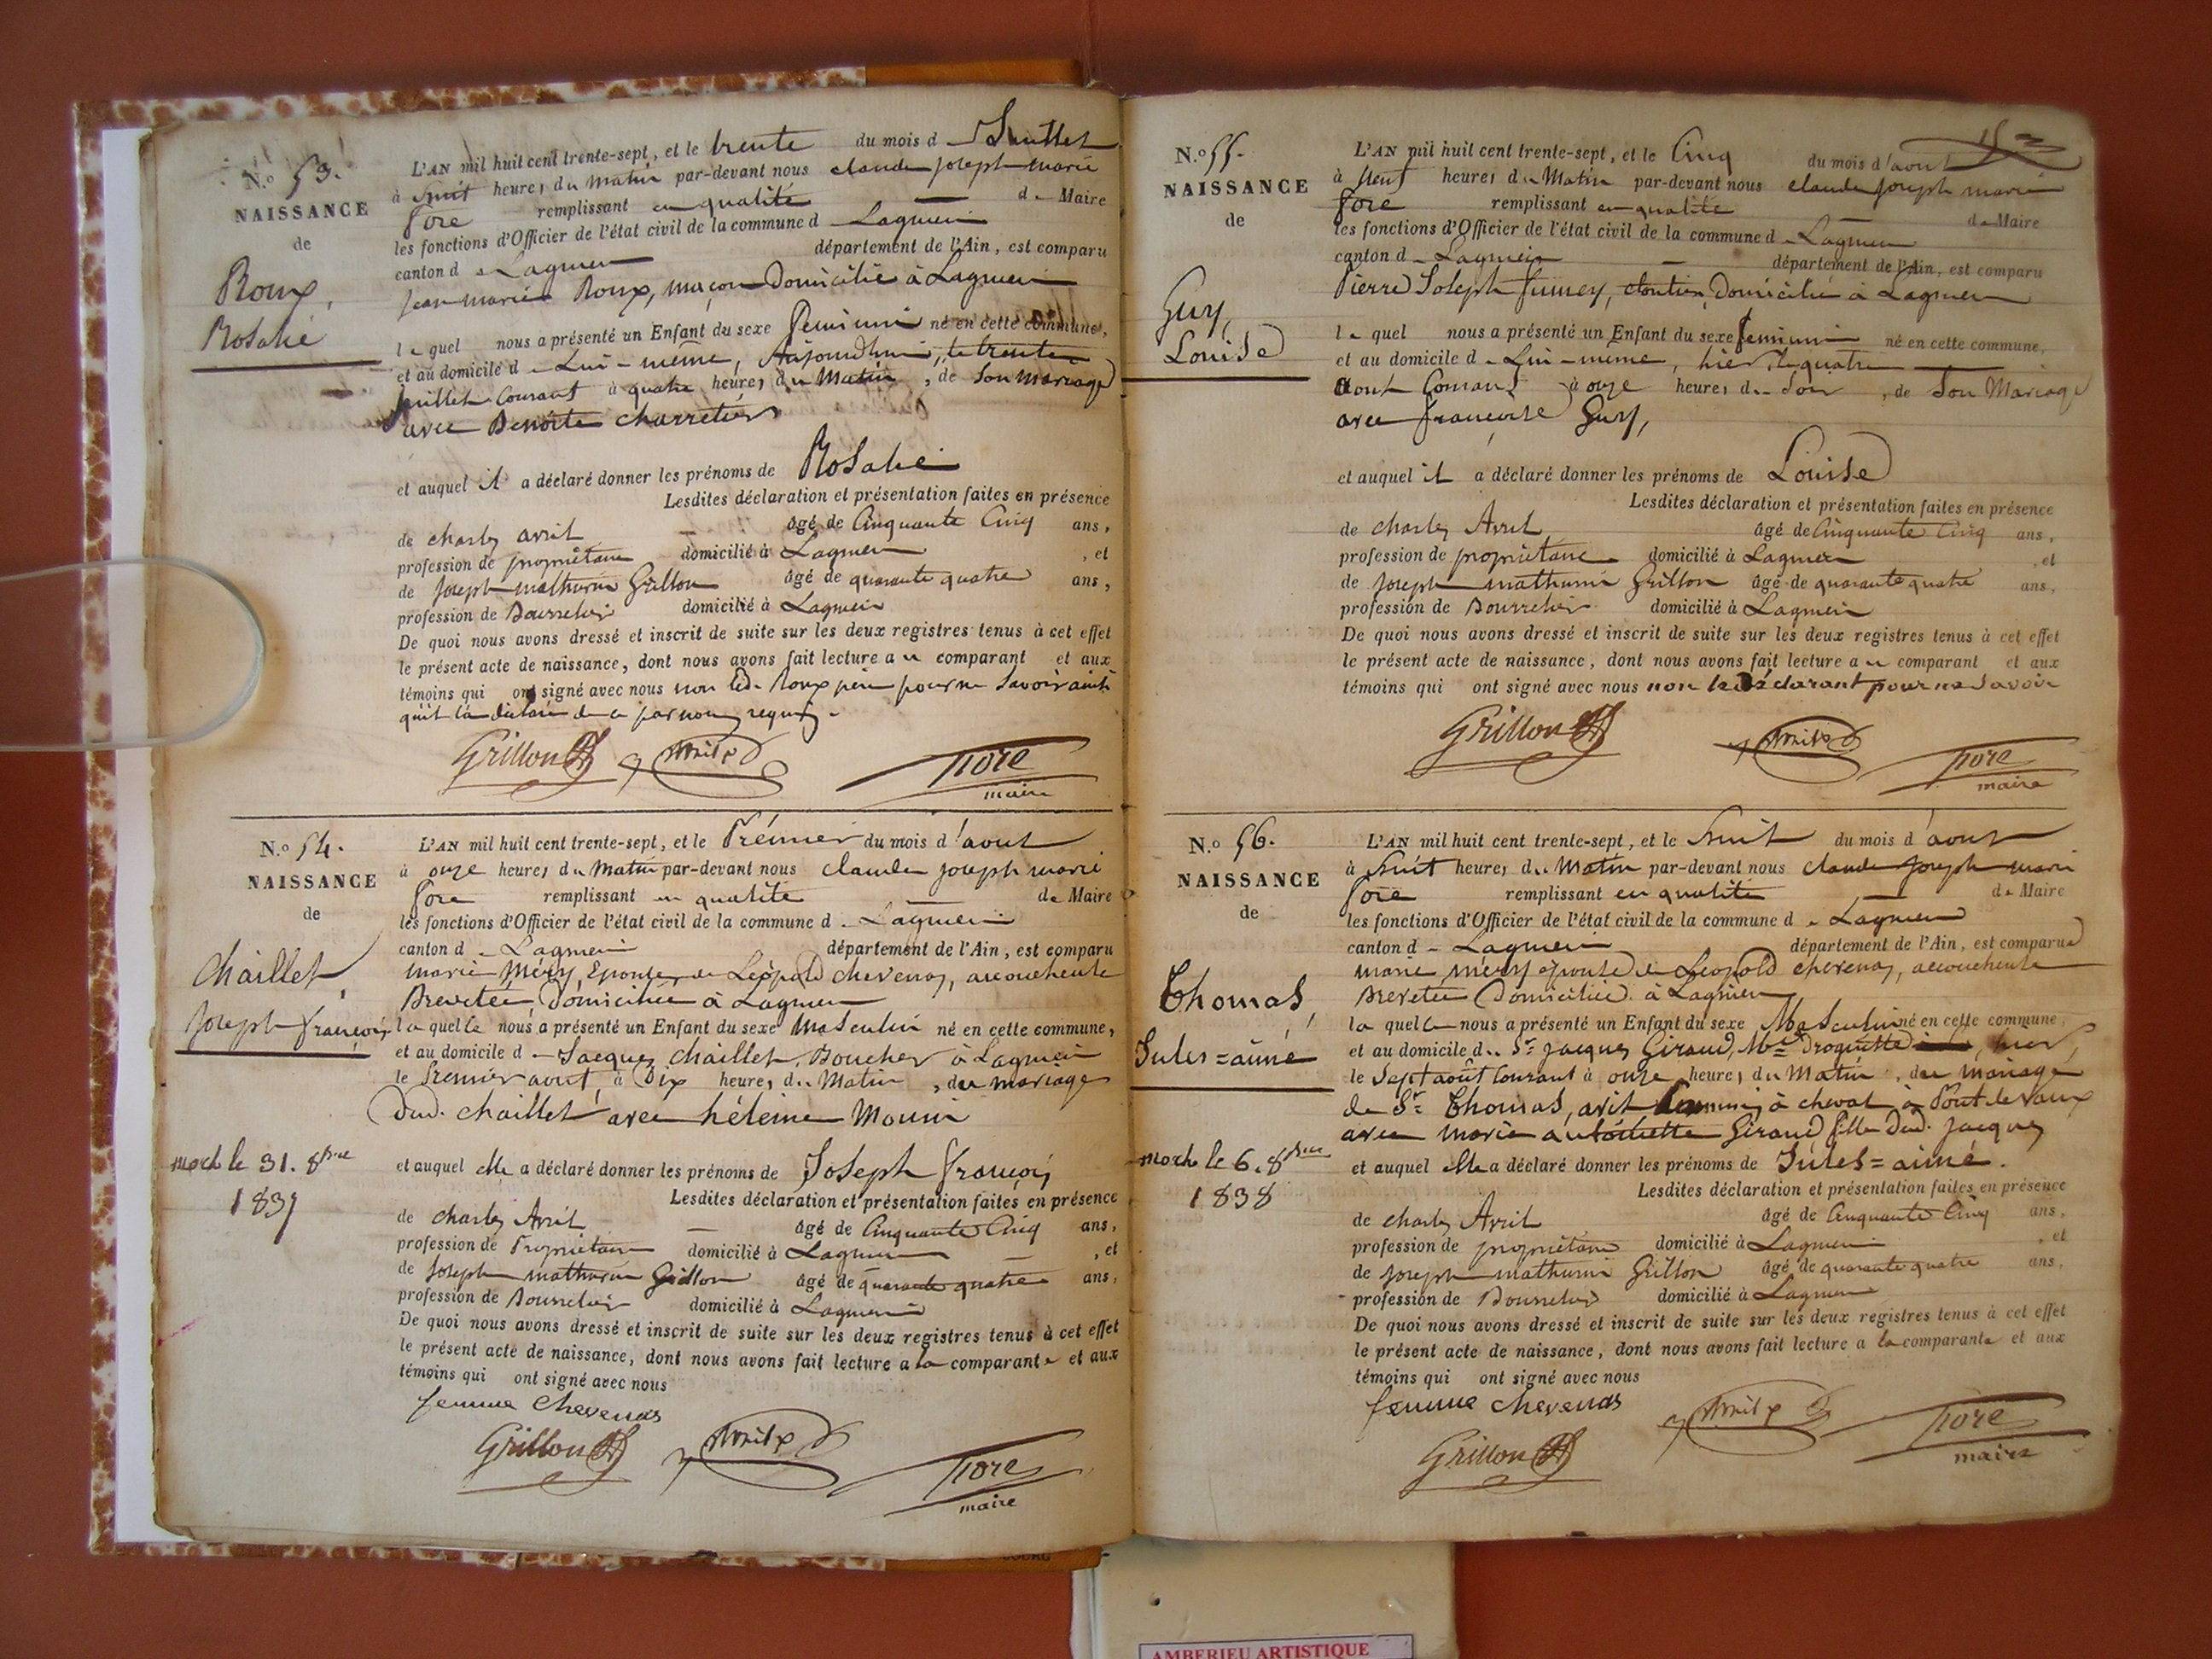 N.o 53.
NAISSANCE
de
Roux,
Rosalie
L'AN mil huit cent trente-sept, et le trente du mois d Juillet
à huit heures du Matin par-devant nous claude joseph marie
fore remplissant en qualité de Maire
les fonctions d'Officier de l'état civil de la commune d Lagnieu
canton d Lagnieu département de l'Ain, est comparu
Jean marie Roux, maçon Domicilié à Lagnieu
le quel nous a présenté un Enfant du sexe feminin né en cette commune,
et au domicile d Lui-même, Aujourdhui, le trente
juillet Courant à quatre heures du Matin, de Son Mariage
avec Benoite charretier
et auquel il a déclaré donner les prénoms de Rosalie
Lesdites déclaration et présentation faites en présence
de charles avril âgé de Cinquante Cinq ans,
profession de propriétaire domicilié à Lagnieu, et
de joseph mathurin Grillon âgé de quarante quatre ans,
profession de Bourrelier domicilié à Lagnieu
De quoi nous avons dressé et inscrit de suite sur les deux registres tenus à cet effet
le présent acte de naissance, dont nous avons fait lecture au comparant et aux
témoins qui ont signé avec nous non led. Roux père pour ne Savoir ainsi
qu'il l'a déclaré de ce par nous requis.
Grillon Avril fore
maire
N.o 54.
NAISSANCE
de
Chaillet,
Joseph françois
mort le 31. 8bre
1837
L'AN mil huit cent trente-sept, et le Premier du mois d'aout
à onze heures du Matin par-devant nous claude joseph marie
fore remplissant en qualité de Maire
les fonctions d'Officier de l'état civil de la commune d Lagnieu
canton d Lagnieu département de l'Ain, est comparu
marie Méry, Epouse, de Léopold chevenas, accoucheuse
Brevetée, Domiciliée à Lagnieu
la quelle nous a présenté un Enfant du sexe Masculin né en cette commune,
et au domicile d Jacques Chaillet, Boucher à Lagnieu
le Premier aout, à Dix heures du Matin, du mariage
dud. chaillet avec héleine Mounin
et auquel elle a déclaré donner les prénoms de Joseph françois
Lesdites déclaration et présentation faites en présence
de charles Avril âgé de Cinquante Cinq ans,
profession de Propriétaire domicilié à Lagnieu, et
de Joseph mathurin Grillon âgé de quarante quatre ans,
profession de Bourrelier domicilié à Lagnieu
De quoi nous avons dressé et inscrit de suite sur les deux registres tenus à cet effet
le présent acte de naissance, dont nous avons fait lecture a la comparante et aux
témoins qui ont signé avec nous
femme Chevenas
Grillon Avril fore
maire
N.o 55.
NAISSANCE
de
Guy,
Louise
L'AN mil huit cent trente-sept, et le Cinq du mois d'aout
à Neuf heures du Matin par-devant nous claude joseph marie
fore remplissant en qualité de Maire
les fonctions d'Officier de l'état civil de la commune d Lagnieu
canton d Lagnieu département de l'Ain, est comparu
Pierre Joseph fumey, cloutier, Domicilié à Lagnieu
le quel nous a présenté un Enfant du sexe feminin né en cette commune,
et au domicile d Lui-même, hier, le quatre
aout Courant à onze heures du Soir, de Son Mariage
avec françoise Guy,
et auquel il a déclaré donner les prénoms de Louise
Lesdites déclaration et présentation faites en présence
de charles Avril âgé de Cinquante Cinq ans,
profession de propriétaire domicilié à Lagnieu, et
de Joseph mathurin Grillon âgé de quarante quatre ans,
profession de Bourrelier domicilié à Lagnieu
De quoi nous avons dressé et inscrit de suite sur les deux registres tenus à cet effet
le présent acte de naissance, dont nous avons fait lecture au comparant et aux
témoins qui ont signé avec nous non le Déclarant pour ne Savoir
Grillon Avril fore
maire
N.o 56.
NAISSANCE
de
Thomas,
Jules=aimé
mort le 6. 8bre
1838
L'AN mil huit cent trente-sept, et le huit du mois d'aout
à huit heures du Matin par-devant nous claude joseph marie
fore remplissant en qualité de Maire
les fonctions d'Officier de l'état civil de la commune d Lagnieu
canton d Lagnieu département de l'Ain, est comparue
marie méry épouse de Léopold chevenas, accoucheuse
Brevetée Domiciliée à Lagnieu
la quelle nous a présenté un Enfant du sexe Masculin né en cette commune,
et au domicile du Sr jacques Giraud, hier,
le Sept août Courant à onze heures du Matin, du mariage
de Sr Thomas, à cheval à Pont de vaux
avec marie antoinette Giraud fille dud. jacques
et auquel elle a déclaré donner les prénoms de Jules=aimé.
Lesdites déclaration et présentation faites en présence
de charles Avril âgé de Cinquante Cinq ans,
profession de propriétaire domicilié à Lagnieu, et
de joseph mathurin Grillon âgé de quarante quatre ans,
profession de Bourrelier domicilié à Lagnieu
De quoi nous avons dressé et inscrit de suite sur les deux registres tenus à cet effet
le présent acte de naissance, dont nous avons fait lecture a la comparante et aux
témoins qui ont signé avec nous
femme chevenas
Grillon Avril fore
maire
AMBERIEU ARTISTIQUE